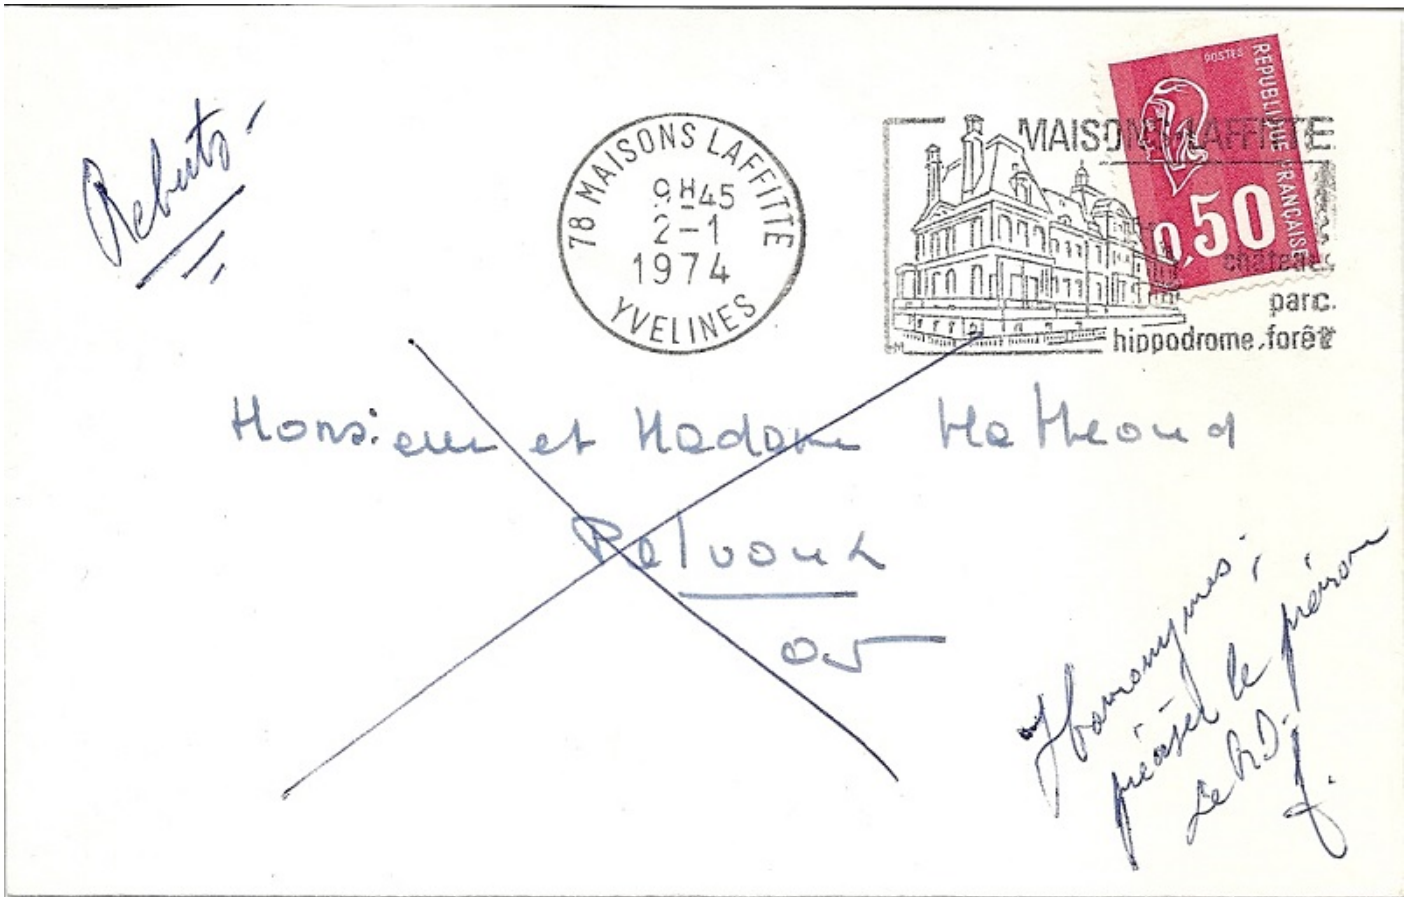 Rebuts -
78 MAISONS LAFFITTE
9H45
2-1
1974
YVELINES
MAISONS-LAFFITTE
château.
parc.
hippodrome.forêt
POSTES
REPUBLIQUE FRANÇAISE
0,50
Monsieur et Madame
Pelvoux
05
Homonymes,
préciser le prénom
Le